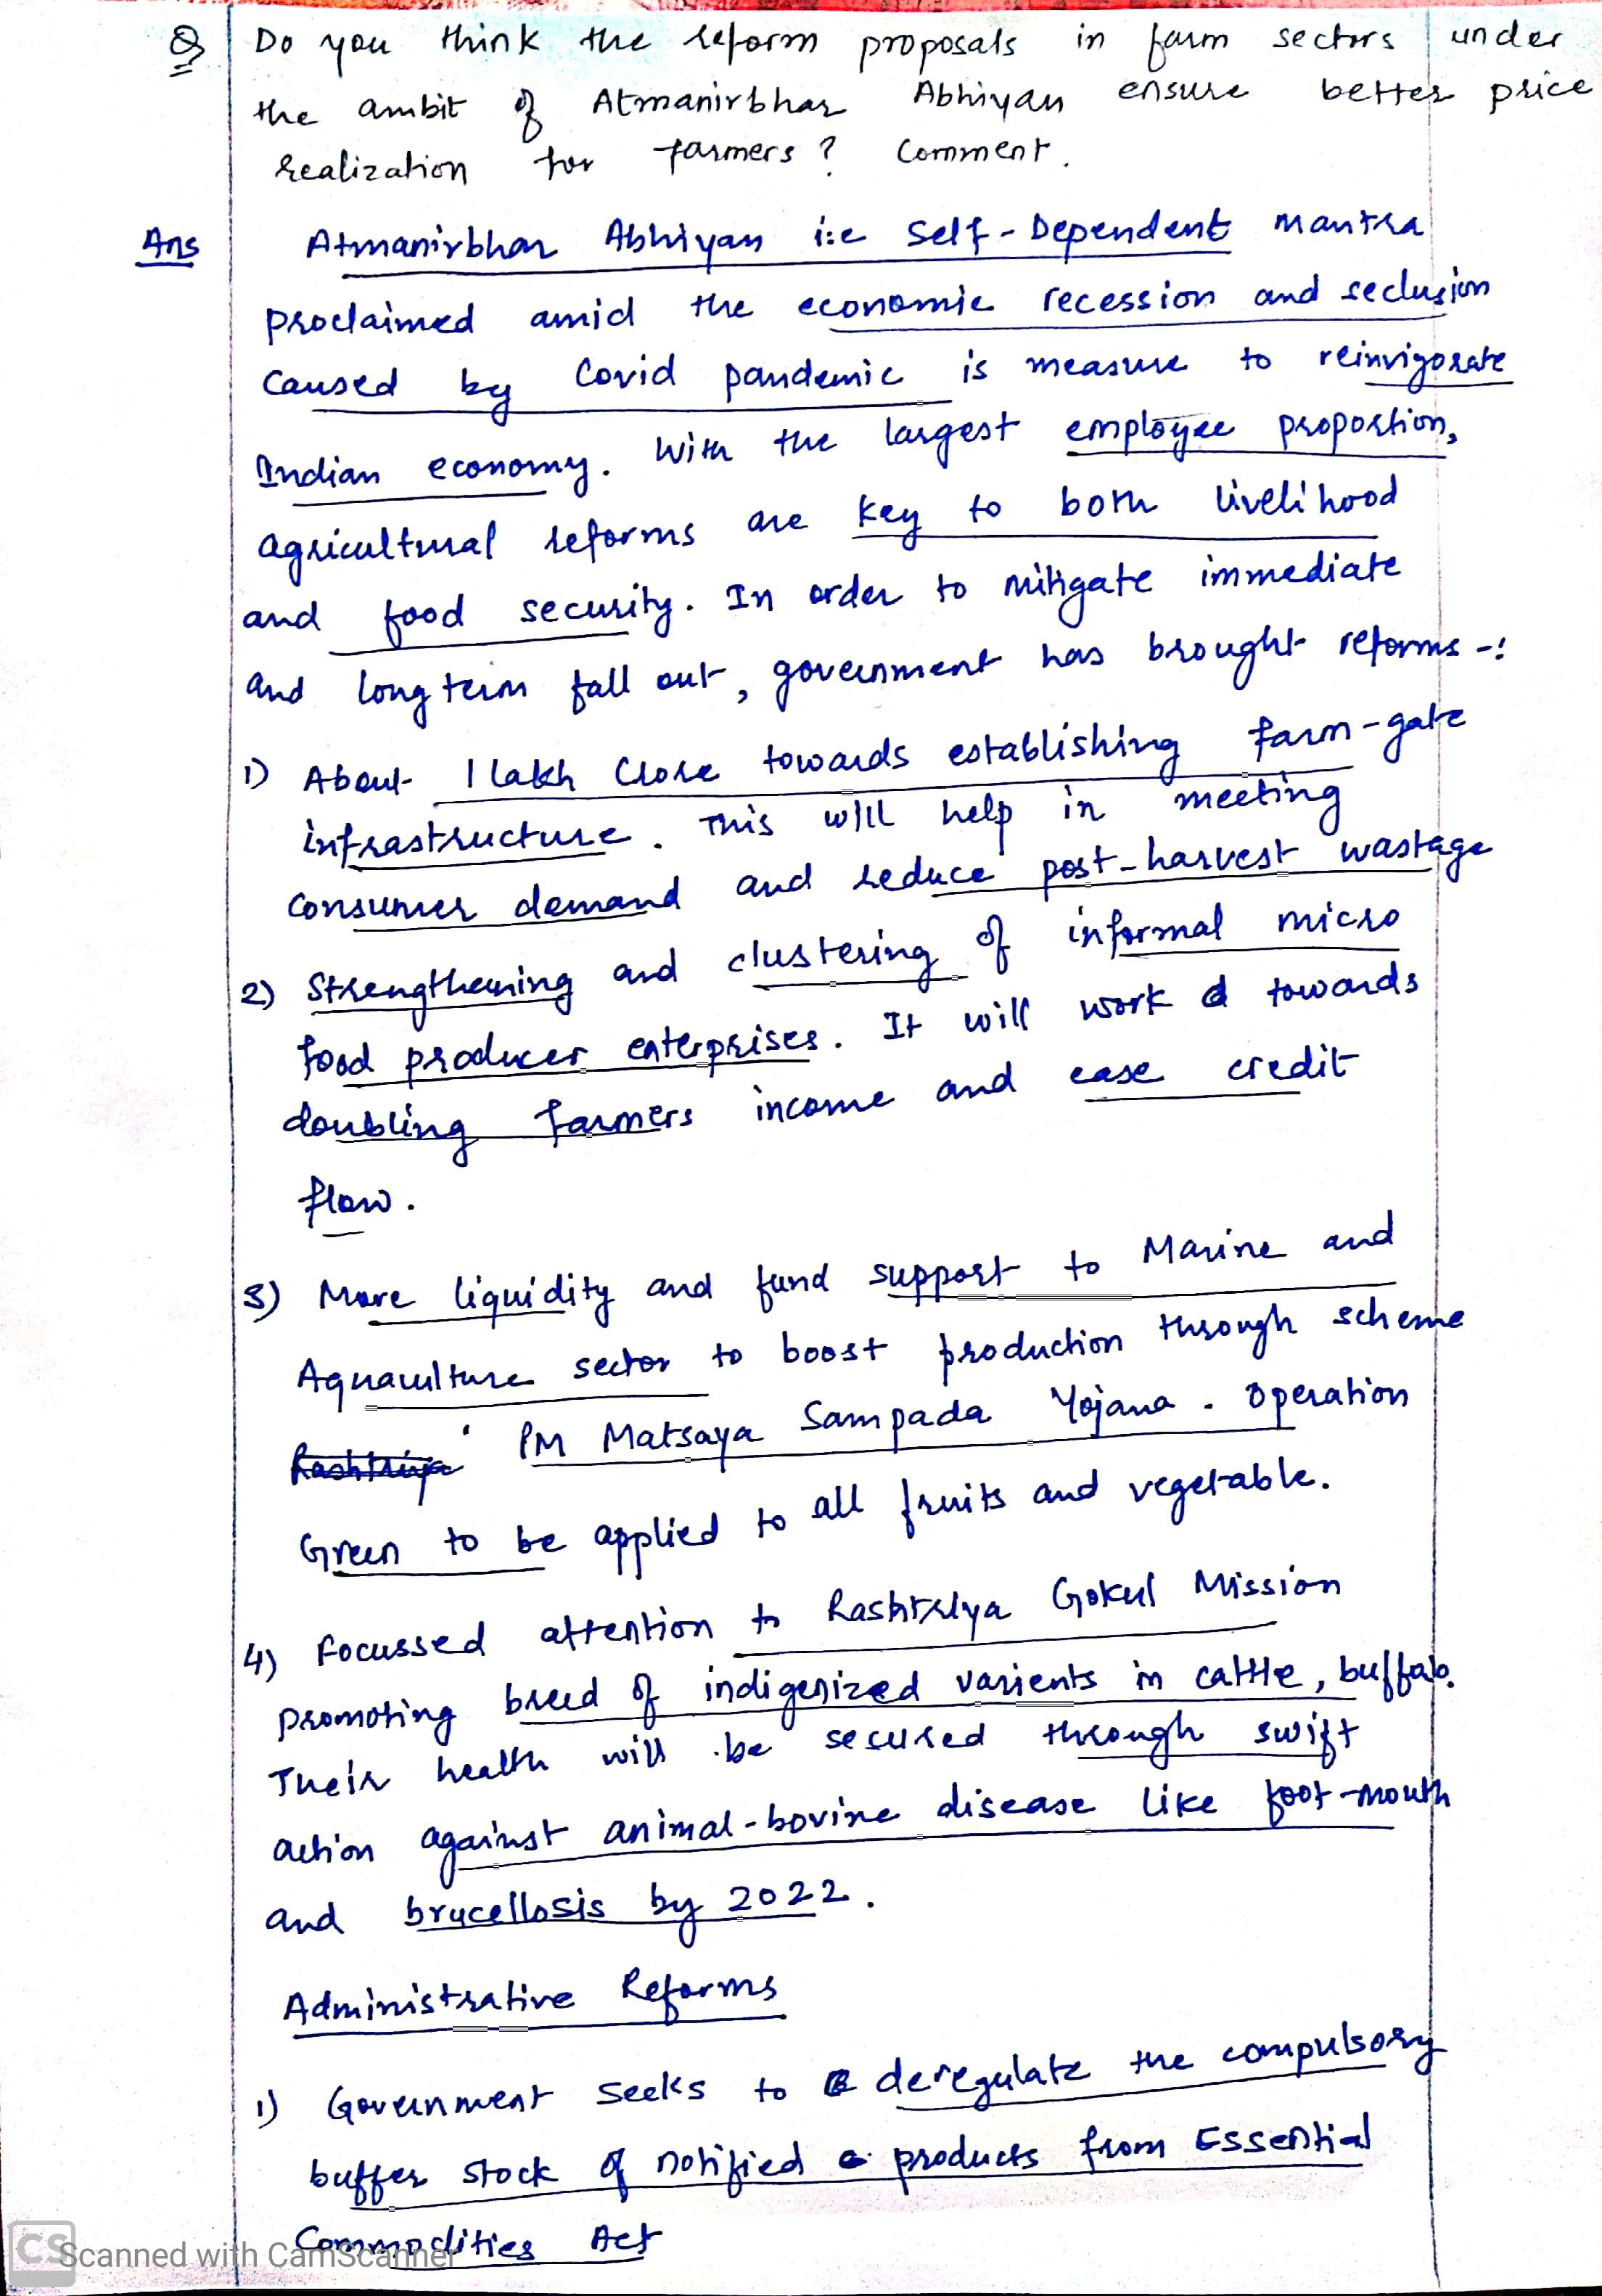 Q Do you think the reform proposals in farm sectors under
the ambit of Atmanirbhar Abhiyan ensure better price
realization for farmers? Comment.
Ans Atmanirbhar Abhiyan i.e Self-Dependent mantra
proclaimed amid the economic recession and seclusion
caused by Covid pandemic is measure to reinvigorate
Indian economy. With the largest employee proportion,
agricultural reforms are key to both livelihood
and food security. In order to mitigate immediate
and long term fall out, government has brought reforms -:
1) About 1 lakh Crore towards establishing farm-gate
infrastructure. This will help in meeting
consumer demand and reduce post-harvest wastage
2) Strengthening and clustering of informal micro
food producer enterprises. It will work towards
doubling farmers income and ease credit
flow.
3) More liquidity and fund support to Marine and
Aquaculture sector to boost production through scheme
Rashtriya PM Matsaya Sampada Yojana. Operation
Green to be applied to all fruits and vegetable.
4) Focussed attention to Rashtriya Gokul Mission
promoting breed of indigenized varients in cattle, buffalo.
Their health will be secured through swift
action against animal-bovine disease like foot-mouth
and brucellosis by 2022.
Administrative Reforms
1) Government seeks to deregulate the compulsory
buffer stock of notified products from Essential
Commodities Act
CS Scanned with CamScanner